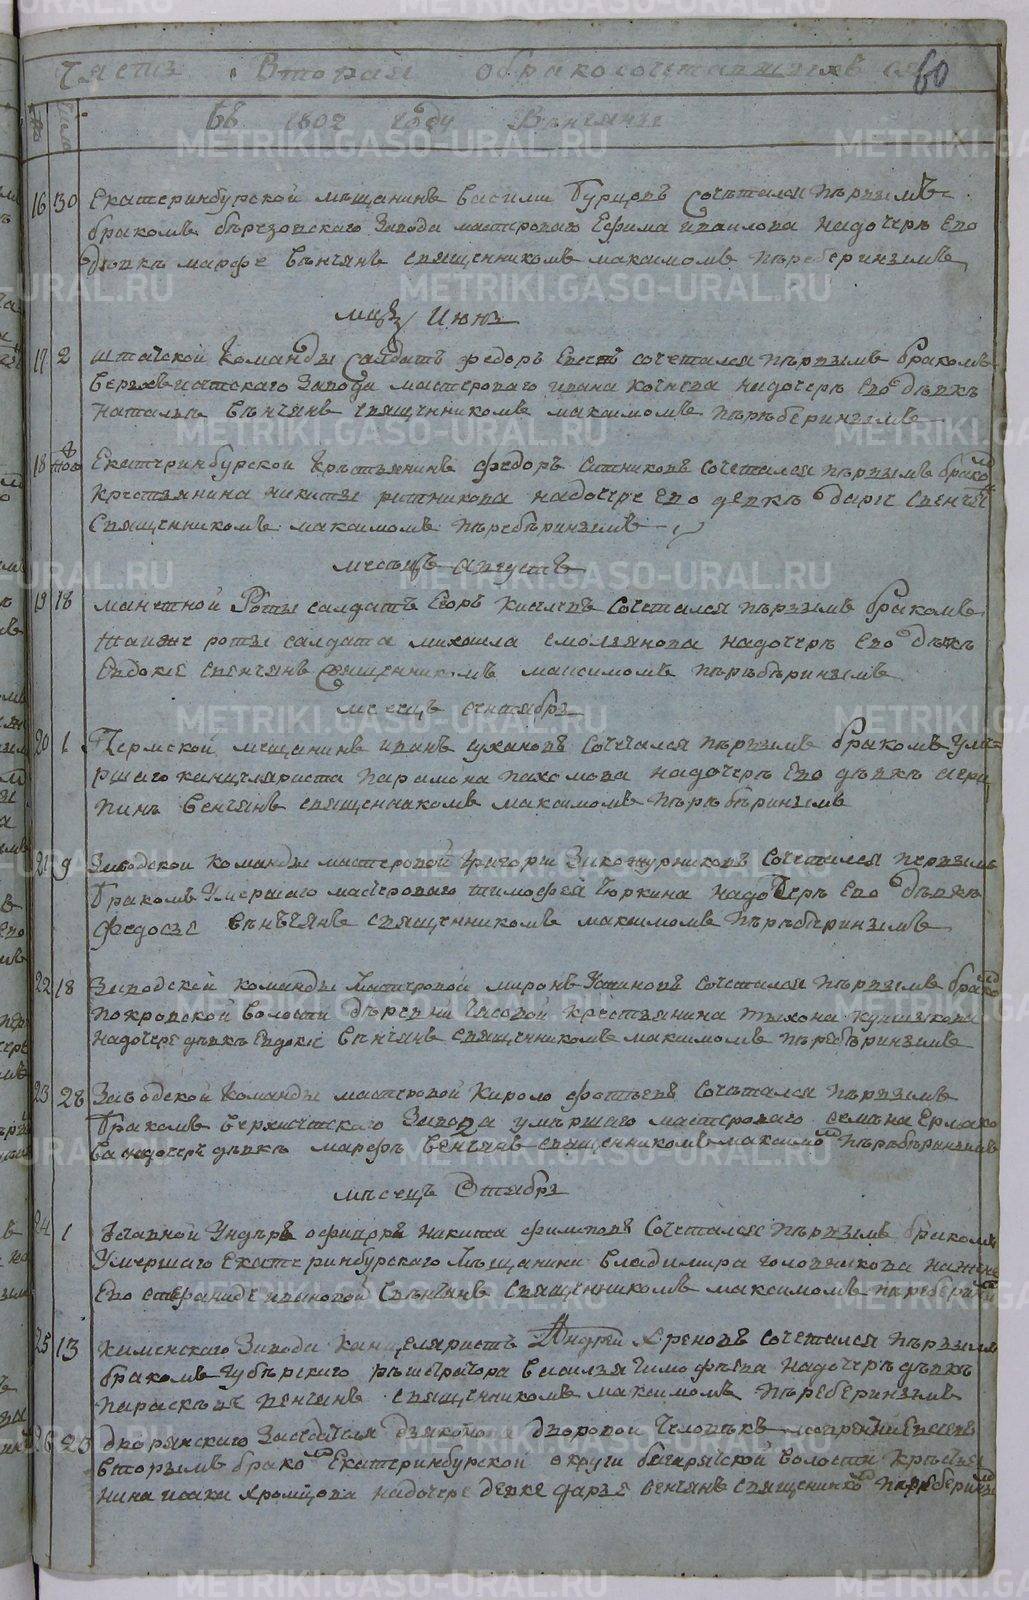 Часть Вторая обракосочетавшихся 60
Въ 1802 году Венчаны
16 30 Екатеринбурской мещанинъ васили бурцовъ сочеталси первымъ
бракомъ березовскаго завода мастероваго Ефима ивиолова надочере Ево
девке марфе венчанъ священникомъ максимомъ переберинымъ
мцъ Июнь
17 2 штатской команды салдатъ федоръ сочетался первымъ бракомъ
верхъ исетскаго завода мастероваго ивана кочнева надочере Ево девке
наталье венчанъ священникомъ максимомъ переберинымъ
18 8 Екатеринбурской крестьянинъ федоръ ситниковъ сочетался первымъ брако
крестьянина никиты надочере Ево девке дарье
священникомъ максимомъ переберинымъ
месецъ августъ
19 18 манетной роты салдатъ Егоръ киселевъ сочетался первымъ бракомъ
роты салдата михаила смольянова надочере Ево девке
Евдокие свенчанъ священникомъ максимомъ переберинымъ
месецъ сентябрь
20 1 Пермской мещанинъ иванъ сухановъ сочетался первымъ бракомъ уме
ршаго канцеляриста парамона пахомова надочере Ево девке агри
пине венчанъ священникомъ максимомъ переберинымъ
21 9 Заводской команды мастеровой григори сочетался первымъ
бракомъ умершаго мастероваго тимофея тюркина надочере Ево девке
федосье венчанъ священникомъ максимомъ переберинымъ
22 18 Заводской команды мастеровой миронъ устиновъ сочетался первымъ брако
покровской волости деревни часовой крестьянина тихона
надочере девке Евдокие венчанъ священникомъ максимомъ переберинымъ
23 28 Заводской команды мастеровой кирило фотеевъ сочетался первымъ
бракомъ верхисетскаго завода умершаго мастероваго семена Ермако
ва надочере девке марфе венчанъ священникомъ максимо переберинымъ
месецъ Октябрь
24 1 ундеръ офицеръ никита сочетался первымъ бракомъ
умершаго Екатеринбурскаго мещанина владимира головникова на жене
Ево степаниде ивановой священникомъ максимомъ перебери
25 13 каменскаго завода канцеляристъ Андрей хреновъ сочетался первымъ
бракомъ губерскаго регистратора василья тимофеева надочере девке
параскеве венчанъ священникомъ максимомъ переберинымъ
26 20 дворянскаго заседателя дьяконова дворовой человекъ
вторымъ брако Екатеринбурской округи багаряцской волости крестья
нина исака хромцова надочере девке дарье венчанъ священнико